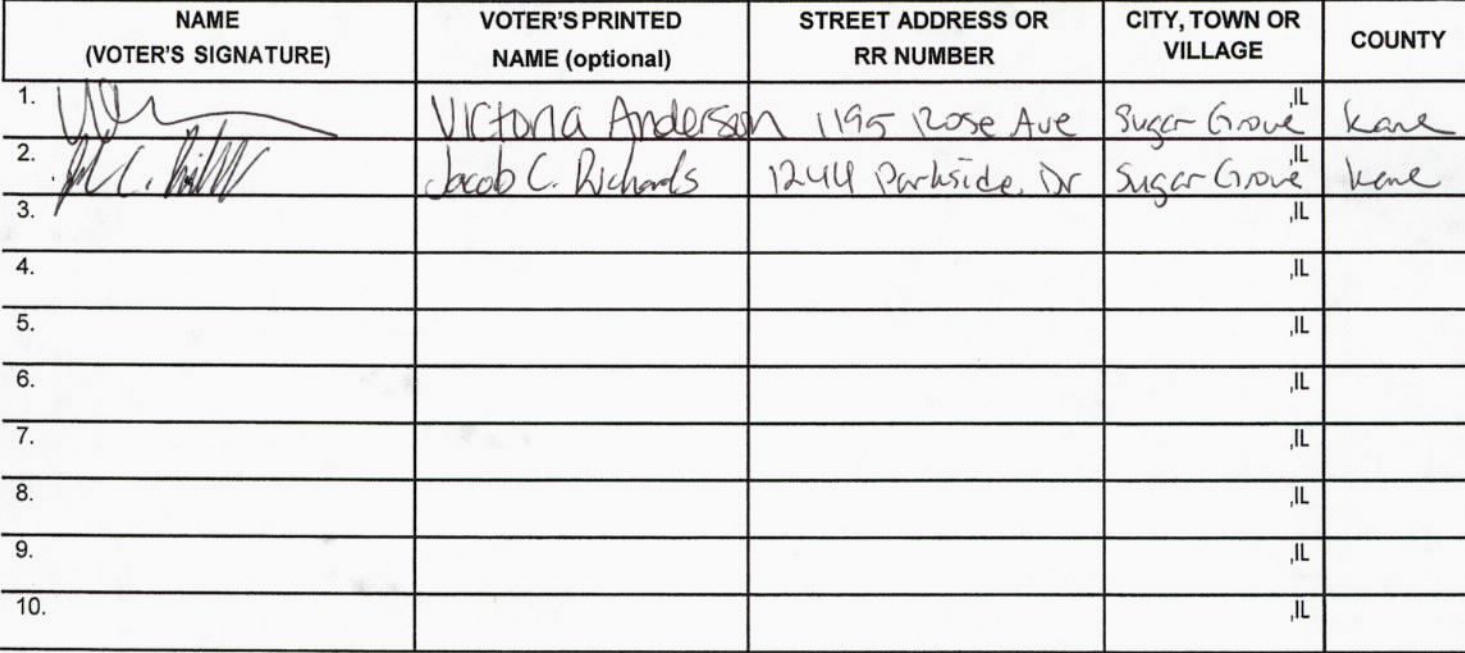 NAME
(VOTER'S SIGNATURE)
VOTER'S PRINTED
NAME (optional)
STREET ADDRESS OR
RR NUMBER
CITY, TOWN OR
VILLAGE
COUNTY
1. Victoria Anderson 1195 Rose Ave Sugar Grove ,IL Kane
2. Jacob C. Richards 1244 Parkside Dr Sugar Grove ,IL Kane
3. ,IL
4. ,IL
5. ,IL
6. ,IL
7. ,IL
8. ,IL
9. ,IL
10. ,IL